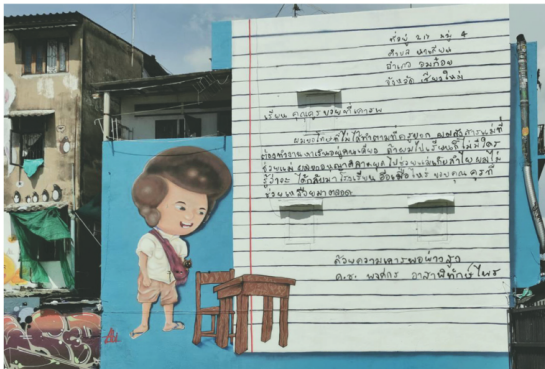 ที่อยู่ 217 หมู่ 4
ตำบล นาเกียน
อำเภอ อมก๋อย
จังหวัด เชียงใหม่
เรียน คุณครูบวยที่เคารพ
ผมขอโทษที่ไม่ได้ทำตามที่ครูบอก ผมสงสารแม่ที่
ต้องทำงานหาเงินอยู่คนเดียว ถ้าผมไปเรียนก็ไม่มีใคร
ช่วยแม่ ผมขออนุญาตลาหยุดไปช่วยแม่เก็บลำไย ผมไม่
รู้ว่าจะ ได้กลับมาโรงเรียน อีกเมื่อไหร่ ขอบคุณครูที่
ช่วยเหลือผมมาตลอด
ด้วยความเคารพอย่างสูง
ด.ช. พงศกร อาสาพิทักษ์ไพร